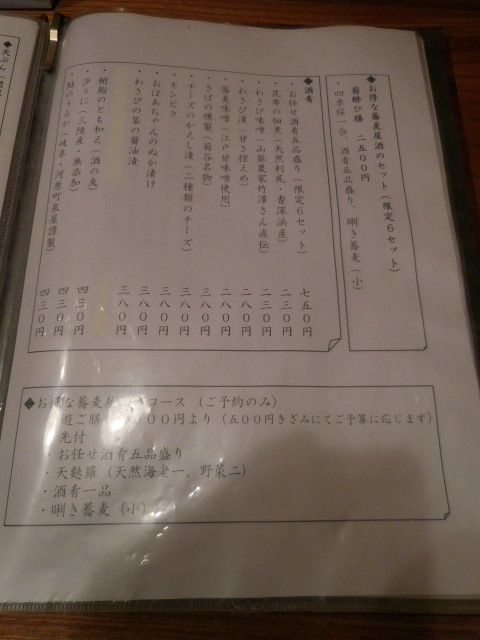 ◆お得な蕎麦屋酒のセット（限定６セット）
菊酔ひ膳　二五００円
・四季桜一合、酒肴五品盛り、唎き蕎麦（小）
◆酒肴
・お任せ酒肴五品盛り（限定６セット）　七五０円
・昆布の佃煮（天然利尻・香深浜産）　二三０円
・わさび味噌（山葵農家竹澤さん直伝）　二三０円
・わさび漬（甘さ控えめ）　二八０円
・蕎麦味噌（江戸甘味噌使用）　二八０円
・さばの燻製（菊谷名物）　三八０円
・チーズのかえし漬（二種類のチーズ）　三八０円
・キンピラ　三八０円
・おばあちゃんのぬか漬け　三八０円
・わさびの茎の醤油漬　三八０円
・鮒鮨のとも和え（酒の友）　四三０円
・汐うに（三陸産・無添加）　四三０円
・鮎のうるか（岐阜・河原町泉屋謹製）　四三０円
◆天ぷら
◆お得な蕎麦屋 コース（ご予約のみ）
遊ご膳 ００円より（五００円きざみにてご予算に応じます）
先付
・お任せ酒肴五品盛り
・天麩羅（天然海老一、野菜二）
・酒肴一品
・唎き蕎麦（小）